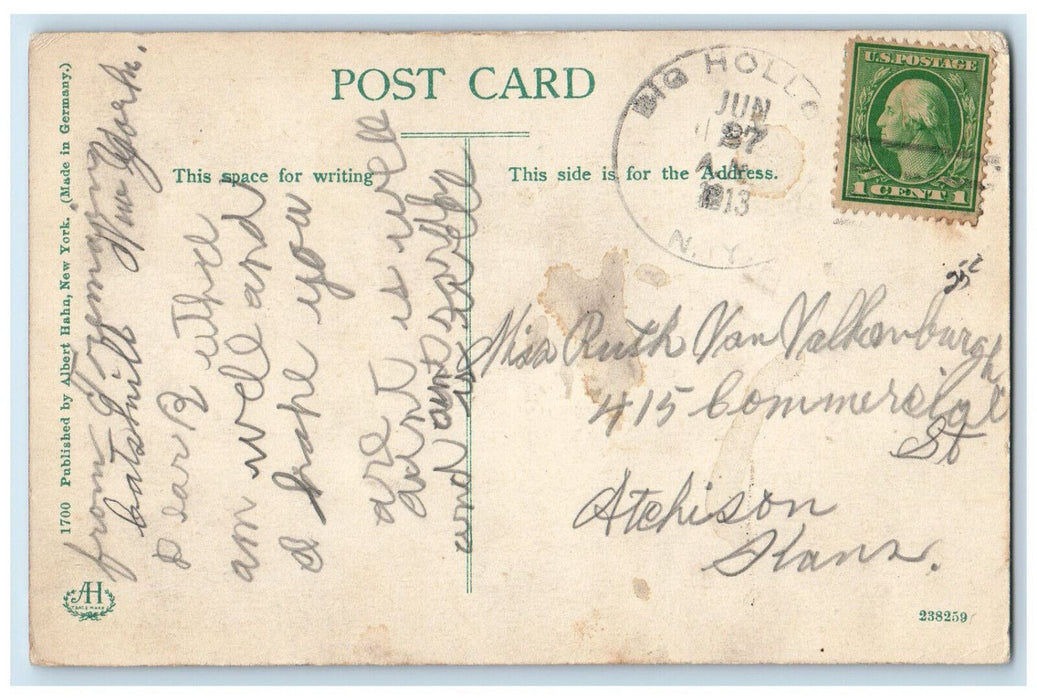 POST CARD
This space for writing
This side is for the Address.
1700 Published by Albert Hahn, New York. (Made in Germany.)
AH
TRADE MARK
BIG HOLLO
JUN
27
A.M.
1913
N.Y.
U.S. POSTAGE
1 CENT 1
from
Catskill New York.
Dear R
am well and
I hope you
are
aint is well
and aunt sarah
is
Miss Ruth Van Valkenburgh
415 Commercial
St
Atchison
Kans.
238259